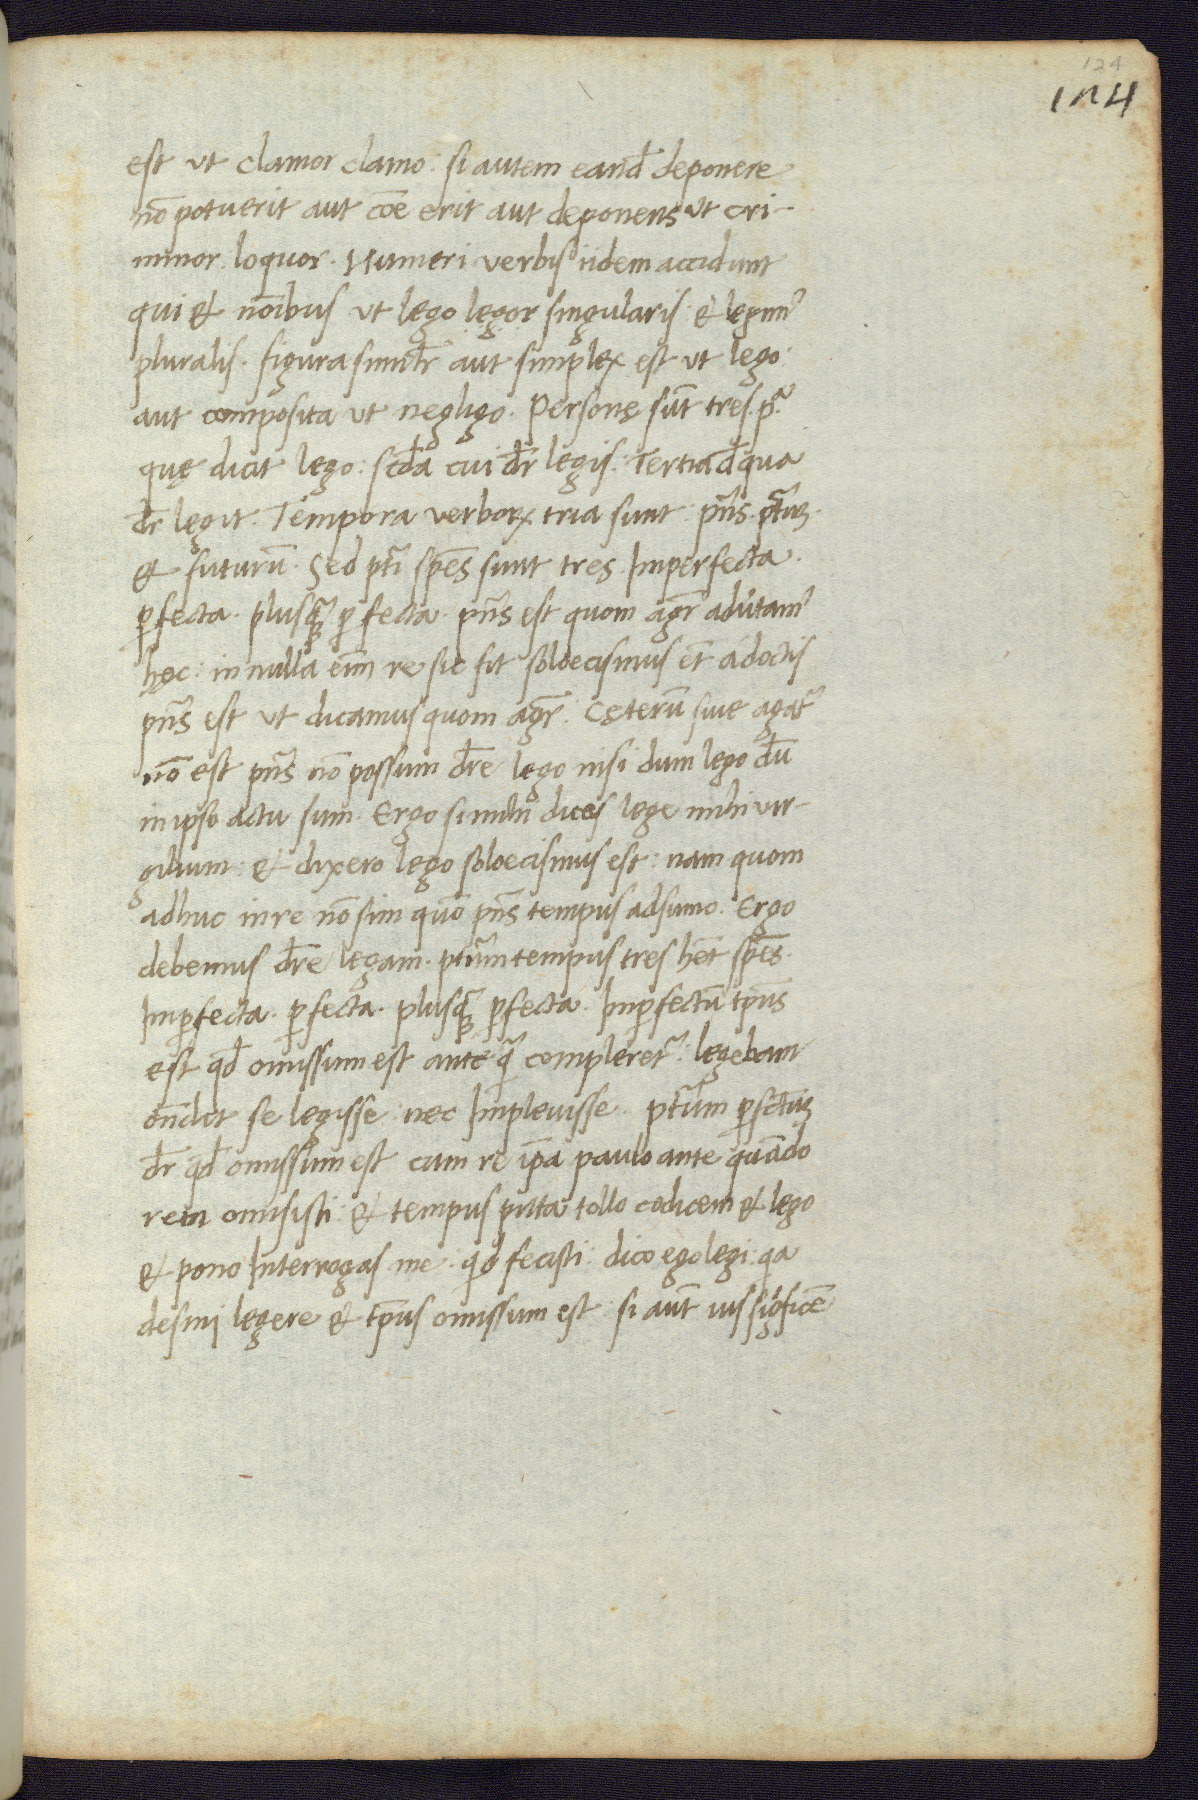 124
124
est ut clamor clamo: si autem eand̄ deponere
nō potuerit aut cōe erit aut deponens ut cri-
minor loquor. Numeri verbis iidem accidunt
qui & nōibus ut lego legor singularis: & legim᾽
pluralis. figura simil̄r aut simplex est ut lego:
aut composita ut negligo. Personę sūt tres. p.ª
quę dicit lego: scd̄a cui dr̄ legis: Tertia d̄ qua
dr̄ legit. Tempora verboꝝ tria sunt: pn̄s. pt̄itū
& futurū. Sed pt̄i sp̄es sunt tres. Imperfecta.
ꝑfecta. plusqꝫ ꝑfecta. pn̄s est quom agr̄ adutam᾽
hoc: in nulla eīm re sic fit soloecismus ēt a doctis
pn̄s est ut dicamus quom agr̄. Cęterū siue agat᾽
nō est pn̄s nō possum dr̄e lego nisi dum lego dū
in ipso actu sum. Ergo si mihi dices lege mihi vir-
gilium: & dixero lego soloecismus est: nam quom
adhuc in re nō sim quō pn̄s tempus adsumo. Ergo
debemus dr̄e legam. pt̄itum tempus tres hēt sp̄es.
Imꝑfecta. ꝑfecta. plusqꝫ ꝑfecta. Imꝑfectū tp̄us
est qd̄ omissum est ante qᷓ compleret᾽: legebam
on̄dit se legisse: nec Impleuisse. pt̄itum ꝑfctū
dr̄ qd̄ omissum est cum re ip̄a paulo ante quādo
rem omisisti: & tempus puta tollo codicem & lego
& pono Interrogas me: qd̄ fecisti: dico ego legi: qa
desinj legere & tp̄us omissum est: si aūt ius sigficē